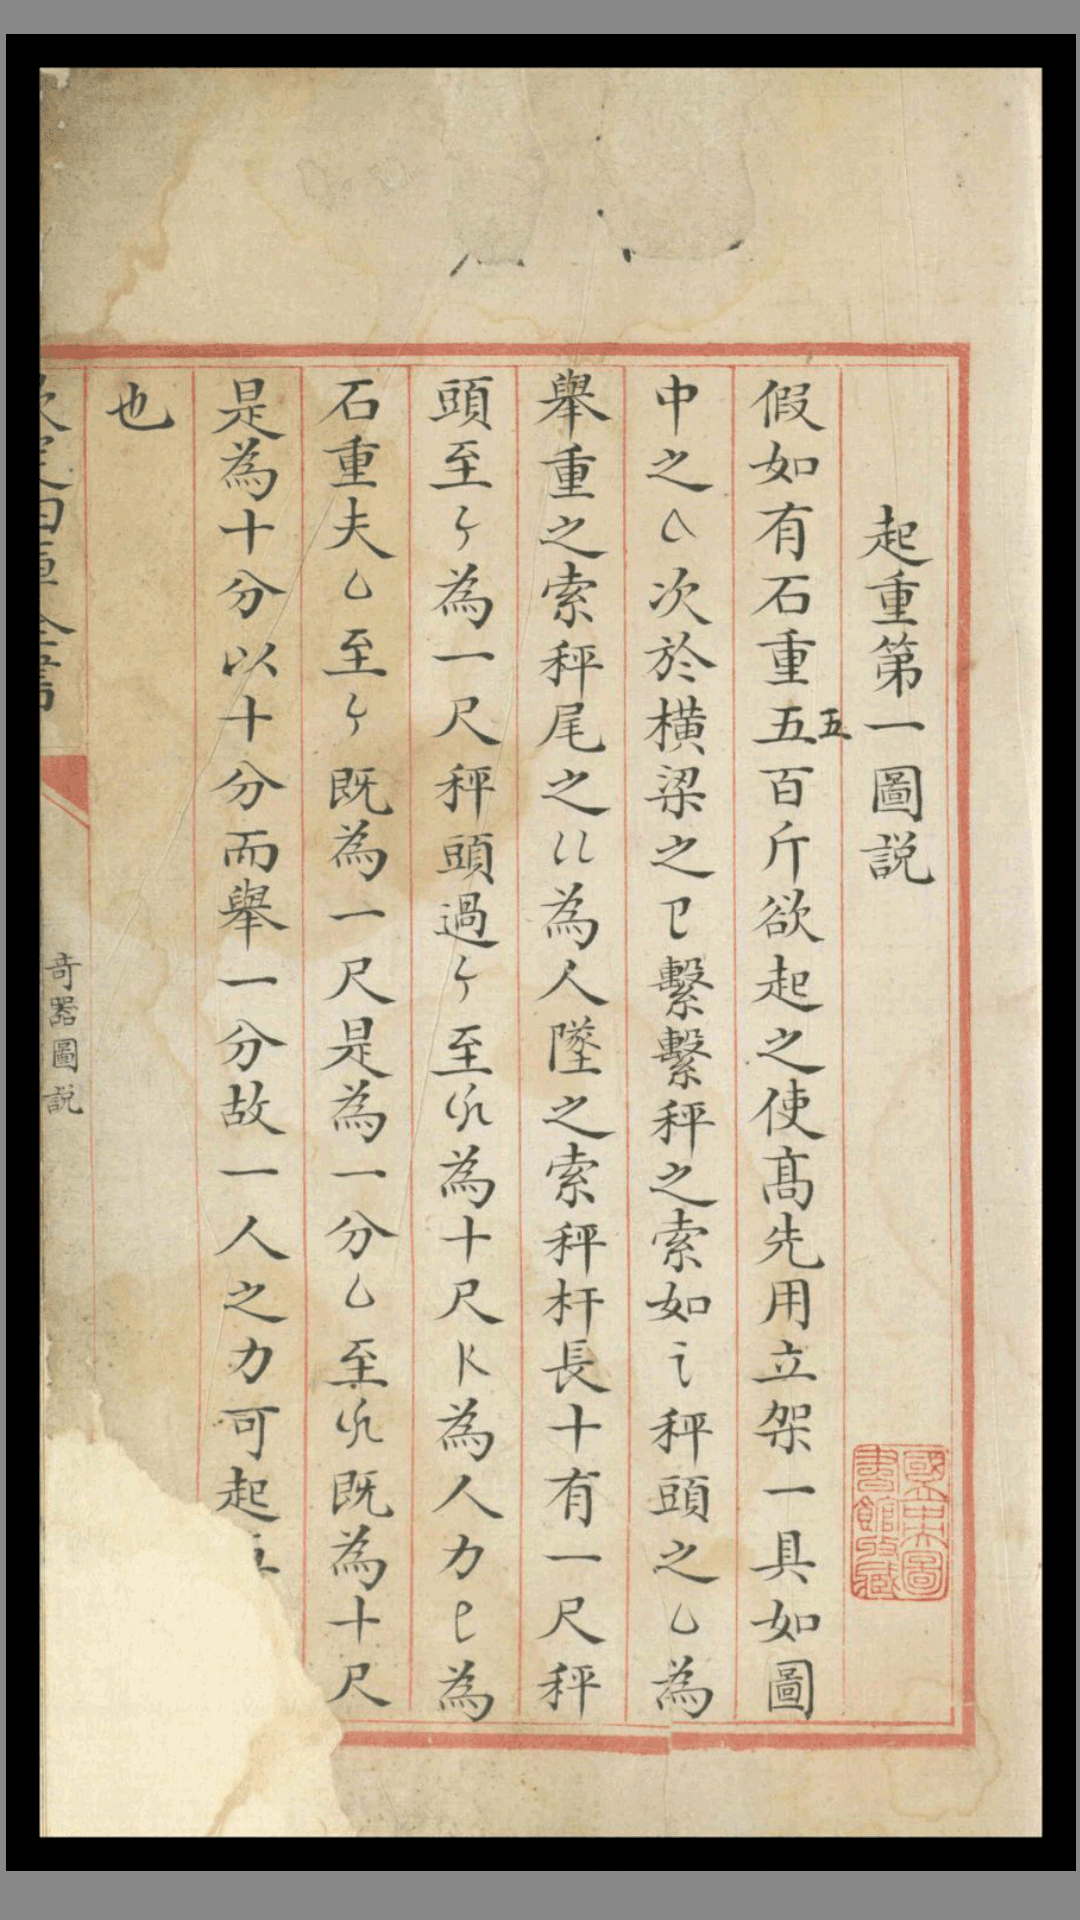 起重第一圖説
假如有石重五百斤欲起之使髙先用立架一具如圖
五
中之次於橫梁之繫繫秤之索如讠秤頭之乚為
舉重之索秤尾之為人墜之索秤杆長十有一尺秤
頭至為一尺秤頭過至為十尺為人力為
石重夫乚至既為一尺是為一分乚至既為十尺
是為十分以十分而舉一分故一人之力可起
也
欽定四庫全書
奇器圖説
國立中央圖
書館收藏